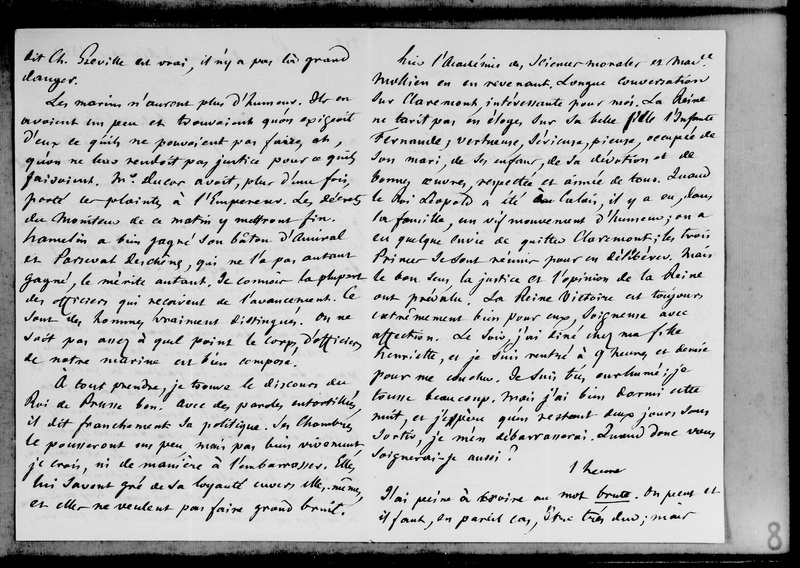 dit Ch. Greville est vrai, il n'y a pas là grand
danger.
Les marins n'auront plus d'humeur. Ils en
avoient un peu et trouvaient qu'on exigeoit
d'eux ce qu'ils ne pouvoient pas faire, et,
qu'on ne leur rendoit pas justice pour ce qu'ils
faisoient. Mr. Ducos avoit, plus d'une fois,
porté ces plaintes à l'Empereur. Les décrets
du Moniteur de ce matin y mettront fin.
Hamelin a bien gagné son bâton d'Amiral
et Parseval Deschênes, qui ne l'a pas autant
gagné, le mérite autant. Je connois la plupart
des officiers qui reçoivent de l'avancement. Ce
sont des hommes vraiment distingués. On ne
sait pas assez à quel point le corps d'officiers
de notre marine est bien composé.
À tout prendre, je trouve le discours du
Roi de Prusse bon. Avec des paroles entortillées,
il dit franchement sa politique. Ses Chambres
le pousseront un peu, mais pas bien vivement
je crois, ni de manière à l'embarrasser. Elles
lui savent gré de sa loyauté envers elles-mêmes,
et elles ne veulent pas faire grand bruit.
hier l'Académie des Sciences morales et Mad.e
Mollien en en revenant. Longue conversation
sur Claremont, intéressante pour moi. La Reine
ne tarit pas en éloges sur sa belle fille l'Infante
Fernande; vertueuse, sérieuse, pieuse, occupée de
son mari, de ses enfans, de sa dévotion et de
bonnes œuvres, respectée et aimée de tous. Quand
le Roi Léopold a été à Calais, il y a eu, dans
la famille, un vif mouvement d'humeur; on a
eu quelque envie de quitter Claremont; les trois
Princes se sont réunis pour en délibérer. Mais
le bon sens, la justice et l'opinion de la Reine
ont prévalu. La Reine Victoire est toujours
extrêmement bien pour eux, soigneuse avec
affection. Le soir, j'ai dîné chez ma fille
Henriette, et je suis rentré à 9 heures et demie
pour me coucher. Je suis très enrhumé; je
tousse beaucoup. Mais j'ai bien dormi cette
nuit, et j'espère qu'en restant deux jours sans
sortir, je m'en débarrasserai. Quand donc vous
soignerai-je aussi ?
1 heure
J'ai peine à croire au mot brute. On peut et
il faut, en pareil cas, être très dur; mais
8